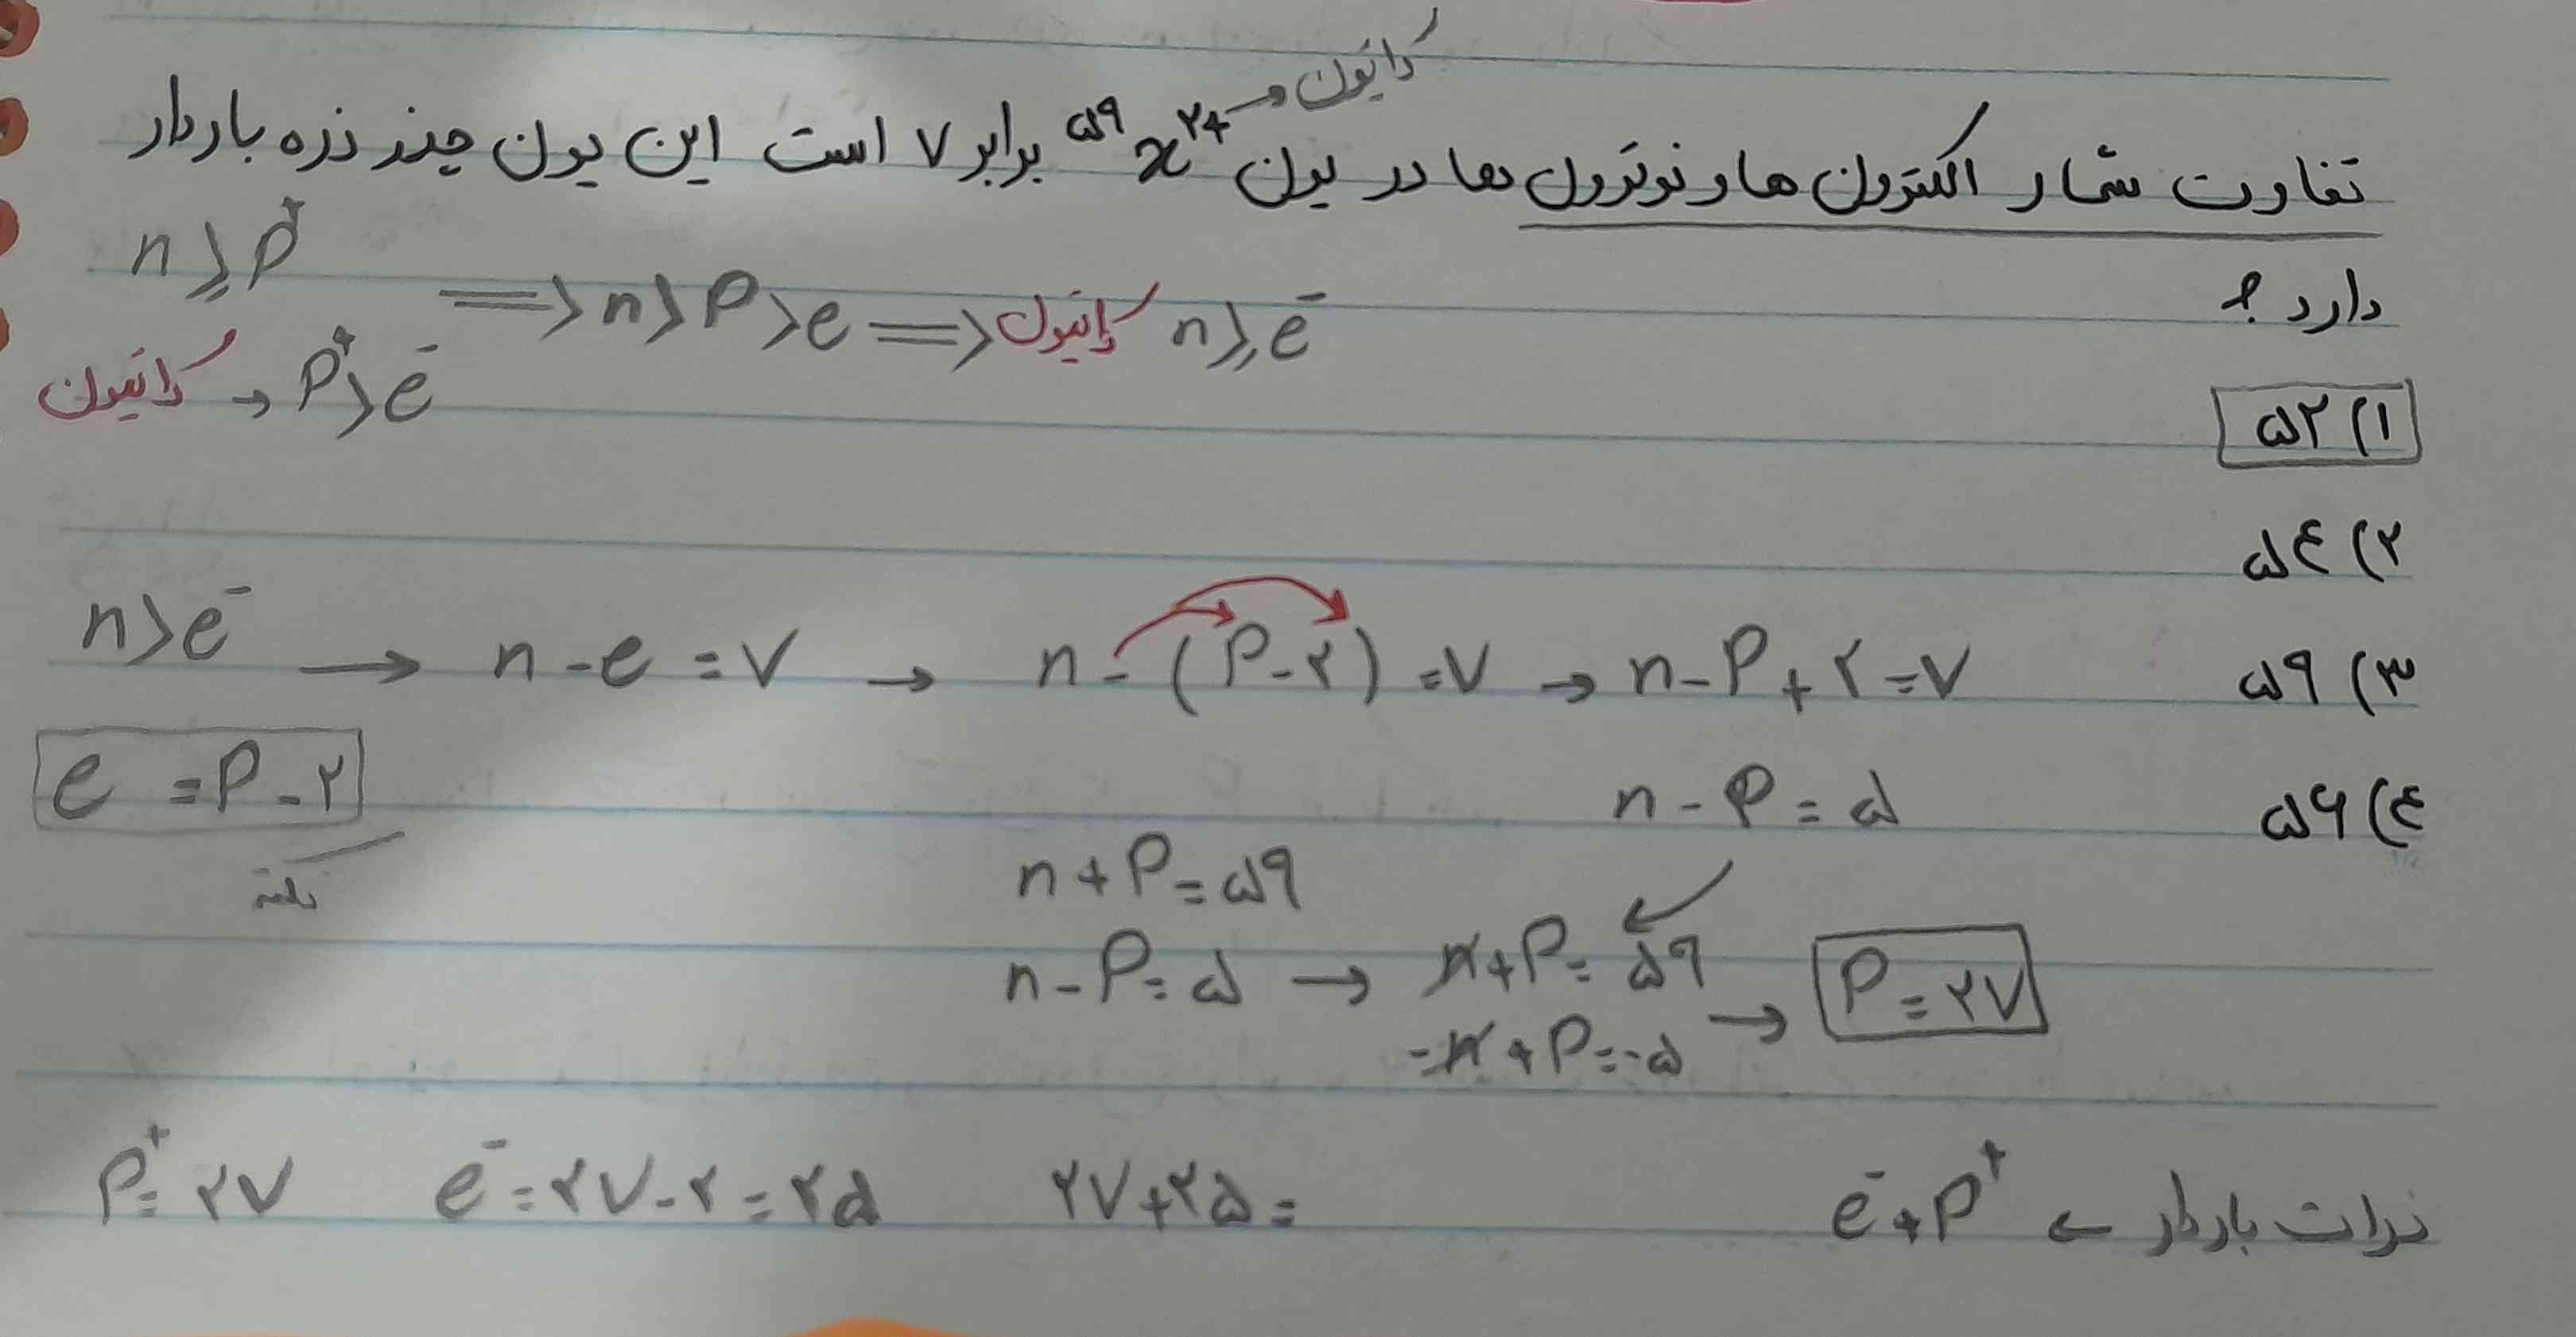 کاتیون
تفاوت شمار الکترون ها و نوترون ها در یون ⁵⁹x²⁺ → برابر ۷ است این یون چند ذره باردار
دارد ؟
n ⩾ p⁺
n ⩾ e⁻ کاتیون <= n > p > e <=
کاتیون → p⁺ > e⁻
۱) ۵۲
۲) ۵۴
n > e⁻ → n - e = ۷ → n - (p - ۲) = ۷ → n - p + ۲ = ۷
۳) ۵۹
e = p - ۲
نکته
n - p = ۵
۴) ۵۶
n + p = ۵۹
n - p = ۵ → n + p = ۵۹
-n + p = -۵ → p = ۲۷
ذرات باردار ← e⁻ + p⁺
p⁺ = ۲۷ e⁻ = ۲۷ - ۲ = ۲۵ ۲۷ + ۲۵ =